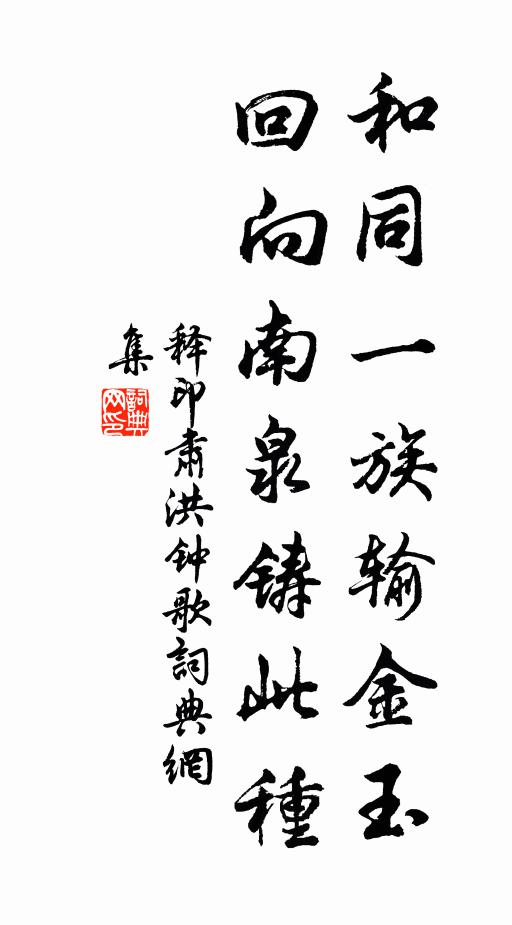 和同一族输金玉
回向南泉铸此種
释印肃洪钟歌詞典網
集
詞典网印